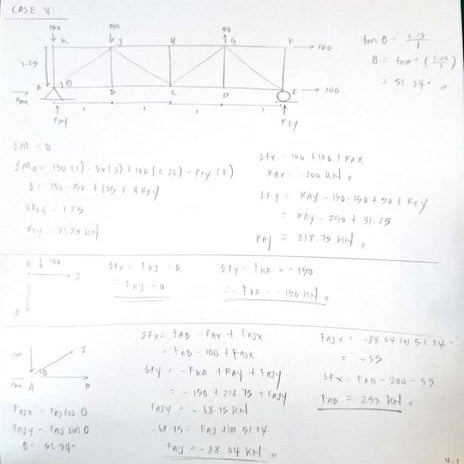 CASE 4:
150 150 50
K J H G F → 100
1.25
A θ B C D E → 100
RAX
RAY REY
1 1 1 1
tan θ = 1.25/1
θ = tan⁻¹ (1.25/1)
= 51.34°
ΣM = 0
ΣMA = 150(1) - 50(3) + 100(1.25) - REY(4)
0 = 150 - 150 + 125 + 4REY
4REY = 125
REY = 31.25 KN
ΣFX = 100 + 100 + RAX
RAX = -200 KN
ΣFY = RAY - 150 - 150 + 50 + REY
= RAY - 250 + 31.25
RAY = 218.75 KN
K 150
J
A
ΣFX = FKJ = 0
∴ FKJ = 0
ΣFY = FKA = -150
∴ FKA = -150 KN
150
J
RAX A θ B
FAJX = FAJ cos θ
FAJY = FAJ sin θ
θ = 51.34°
ΣFX = FAB - RAX + FAJX
= FAB - 200 + FAJX
ΣFY = -FKA + RAY + FAJY
= -150 + 218.75 + FAJY
FAJY = -68.75 KN
-68.75 = FAJ sin 51.34
FAJ = -88.04 KN
FAJX = -88.04 cos 51.34°
= -55
ΣFX = FAB - 200 - 55
FAB = 255 KN